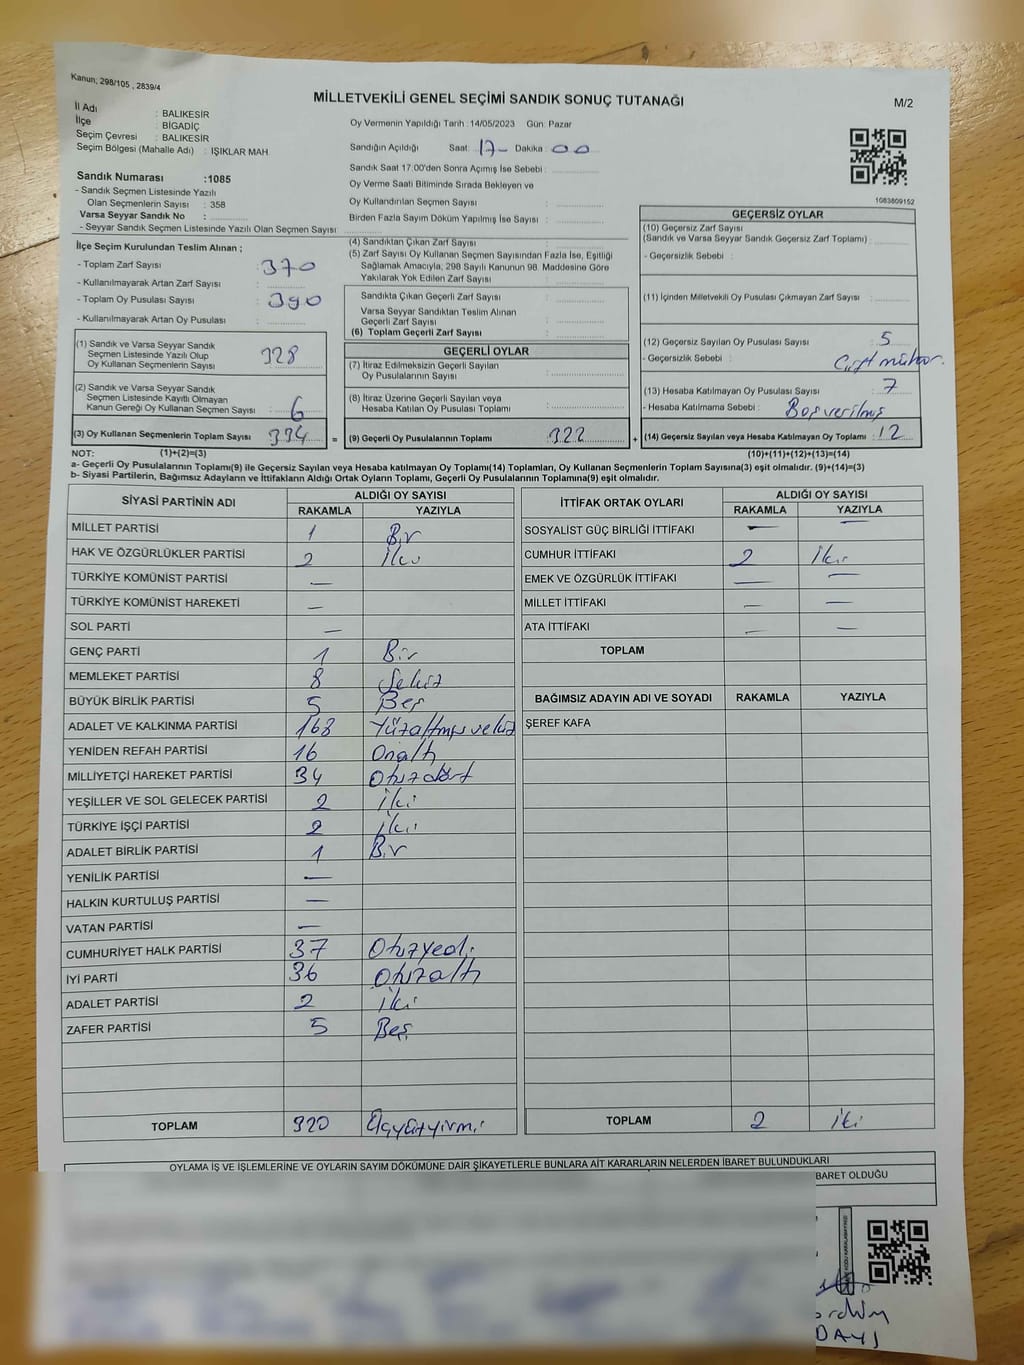 Kanun; 298/105 , 2839/4
MİLLETVEKİLİ GENEL SEÇİMİ SANDIK SONUÇ TUTANAĞI
M/2
İl Adı : BALIKESİR
İlçe : BİGADİÇ
Seçim Çevresi : BALIKESİR
Seçim Bölgesi (Mahalle Adı) : IŞIKLAR MAH
Oy Vermenin Yapıldığı Tarih : 14/05/2023 Gün: Pazar
Sandığın Açıldığı Saat : 17- Dakika : 00
Sandık Saat 17:00'den Sonra Açılmış İse Sebebi :
Oy Verme Saati Bitiminde Sırada Bekleyen ve
Oy Kullandırılan Seçmen Sayısı :
Birden Fazla Sayım Döküm Yapılmış İse Sayısı :
1083809152
Sandık Numarası :1085
- Sandık Seçmen Listesinde Yazılı
Olan Seçmenlerin Sayısı : 358
Varsa Seyyar Sandık No :
- Seyyar Sandık Seçmen Listesinde Yazılı Olan Seçmen Sayısı :
İlçe Seçim Kurulundan Teslim Alınan ;
- Toplam Zarf Sayısı : 370
- Kullanılmayarak Artan Zarf Sayısı :
- Toplam Oy Pusulası Sayısı : 390
- Kullanılmayarak Artan Oy Pusulası :
(1) Sandık ve Varsa Seyyar Sandık
Seçmen Listesinde Yazılı Olup
Oy Kullanan Seçmenlerin Sayısı : 328
(2) Sandık ve Varsa Seyyar Sandık
Seçmen Listesinde Kayıtlı Olmayan
Kanun Gereği Oy Kullanan Seçmen Sayısı : 6
(3) Oy Kullanan Seçmenlerin Toplam Sayısı : 334 =
(4) Sandıktan Çıkan Zarf Sayısı :
(5) Zarf Sayısı Oy Kullanan Seçmen Sayısından Fazla İse, Eşitliği
Sağlamak Amacıyla; 298 Sayılı Kanunun 98. Maddesine Göre
Yakılarak Yok Edilen Zarf Sayısı :
Sandıkta Çıkan Geçerli Zarf Sayısı :
Varsa Seyyar Sandıktan Teslim Alınan
Geçerli Zarf Sayısı :
(6) Toplam Geçerli Zarf Sayısı :
GEÇERLİ OYLAR
(7) İtiraz Edilmeksizin Geçerli Sayılan
Oy Pusulalarının Sayısı :
(8) İtiraz Üzerine Geçerli Sayılan veya
Hesaba Katılan Oy Pusulaları Toplamı :
(9) Geçerli Oy Pusulalarının Toplamı : 322 +
GEÇERSİZ OYLAR
(10) Geçersiz Zarf Sayısı
(Sandık ve Varsa Seyyar Sandık Geçersiz Zarf Toplamı) :
- Geçersizlik Sebebi :
(11) İçinden Milletvekili Oy Pusulası Çıkmayan Zarf Sayısı :
(12) Geçersiz Sayılan Oy Pusulası Sayısı : 5
- Geçersizlik Sebebi : Çift mühür.
(13) Hesaba Katılmayan Oy Pusulası Sayısı : 7
- Hesaba Katılmama Sebebi : Boş verilmiş
(14) Geçersiz Sayılan veya Hesaba Katılmayan Oy Toplamı : 12
NOT: (1)+(2)=(3) (10)+(11)+(12)+(13)=(14)
a- Geçerli Oy Pusulalarının Toplamı(9) ile Geçersiz Sayılan veya Hesaba katılmayan Oy Toplamı(14) Toplamları, Oy Kullanan Seçmenlerin Toplam Sayısına(3) eşit olmalıdır. (9)+(14)=(3)
b- Siyasi Partilerin, Bağımsız Adayların ve İttifakların Aldığı Ortak Oyların Toplamı, Geçerli Oy Pusulalarının Toplamına(9) eşit olmalıdır.
SİYASİ PARTİNİN ADI ALDIĞI OY SAYISI
RAKAMLA YAZIYLA
MİLLET PARTİSİ 1 Bir
HAK VE ÖZGÜRLÜKLER PARTİSİ 2 İki
TÜRKİYE KOMÜNİST PARTİSİ —
TÜRKİYE KOMÜNİST HAREKETİ —
SOL PARTİ —
GENÇ PARTİ 1 Bir
MEMLEKET PARTİSİ 8 Sekiz
BÜYÜK BİRLİK PARTİSİ 5 Beş
ADALET VE KALKINMA PARTİSİ 168 Yüzaltmışsekiz
YENİDEN REFAH PARTİSİ 16 Onaltı
MİLLİYETÇİ HAREKET PARTİSİ 34 Otuzdört
YEŞİLLER VE SOL GELECEK PARTİSİ 2 İki
TÜRKİYE İŞÇİ PARTİSİ 2 İki
ADALET BİRLİK PARTİSİ 1 Bir
YENİLİK PARTİSİ —
HALKIN KURTULUŞ PARTİSİ —
VATAN PARTİSİ —
CUMHURİYET HALK PARTİSİ 37 Otuzyedi
İYİ PARTİ 36 Otuzaltı
ADALET PARTİSİ 2 İki
ZAFER PARTİSİ 5 Beş
TOPLAM 320 Üçyüzyirmi
İTTİFAK ORTAK OYLARI ALDIĞI OY SAYISI
RAKAMLA YAZIYLA
SOSYALİST GÜÇ BİRLİĞİ İTTİFAKI — —
CUMHUR İTTİFAKI 2 İki
EMEK VE ÖZGÜRLÜK İTTİFAKI — —
MİLLET İTTİFAKI — —
ATA İTTİFAKI — —
TOPLAM
BAĞIMSIZ ADAYIN ADI VE SOYADI RAKAMLA YAZIYLA
ŞEREF KAFA
TOPLAM 2 İki
OYLAMA İŞ VE İŞLEMLERİNE VE OYLARIN SAYIM DÖKÜMÜNE DAİR ŞİKAYETLERLE BUNLARA AİT KARARLARIN NELERDEN İBARET BULUNDUKLARI
BARET OLDUĞU
DAYI